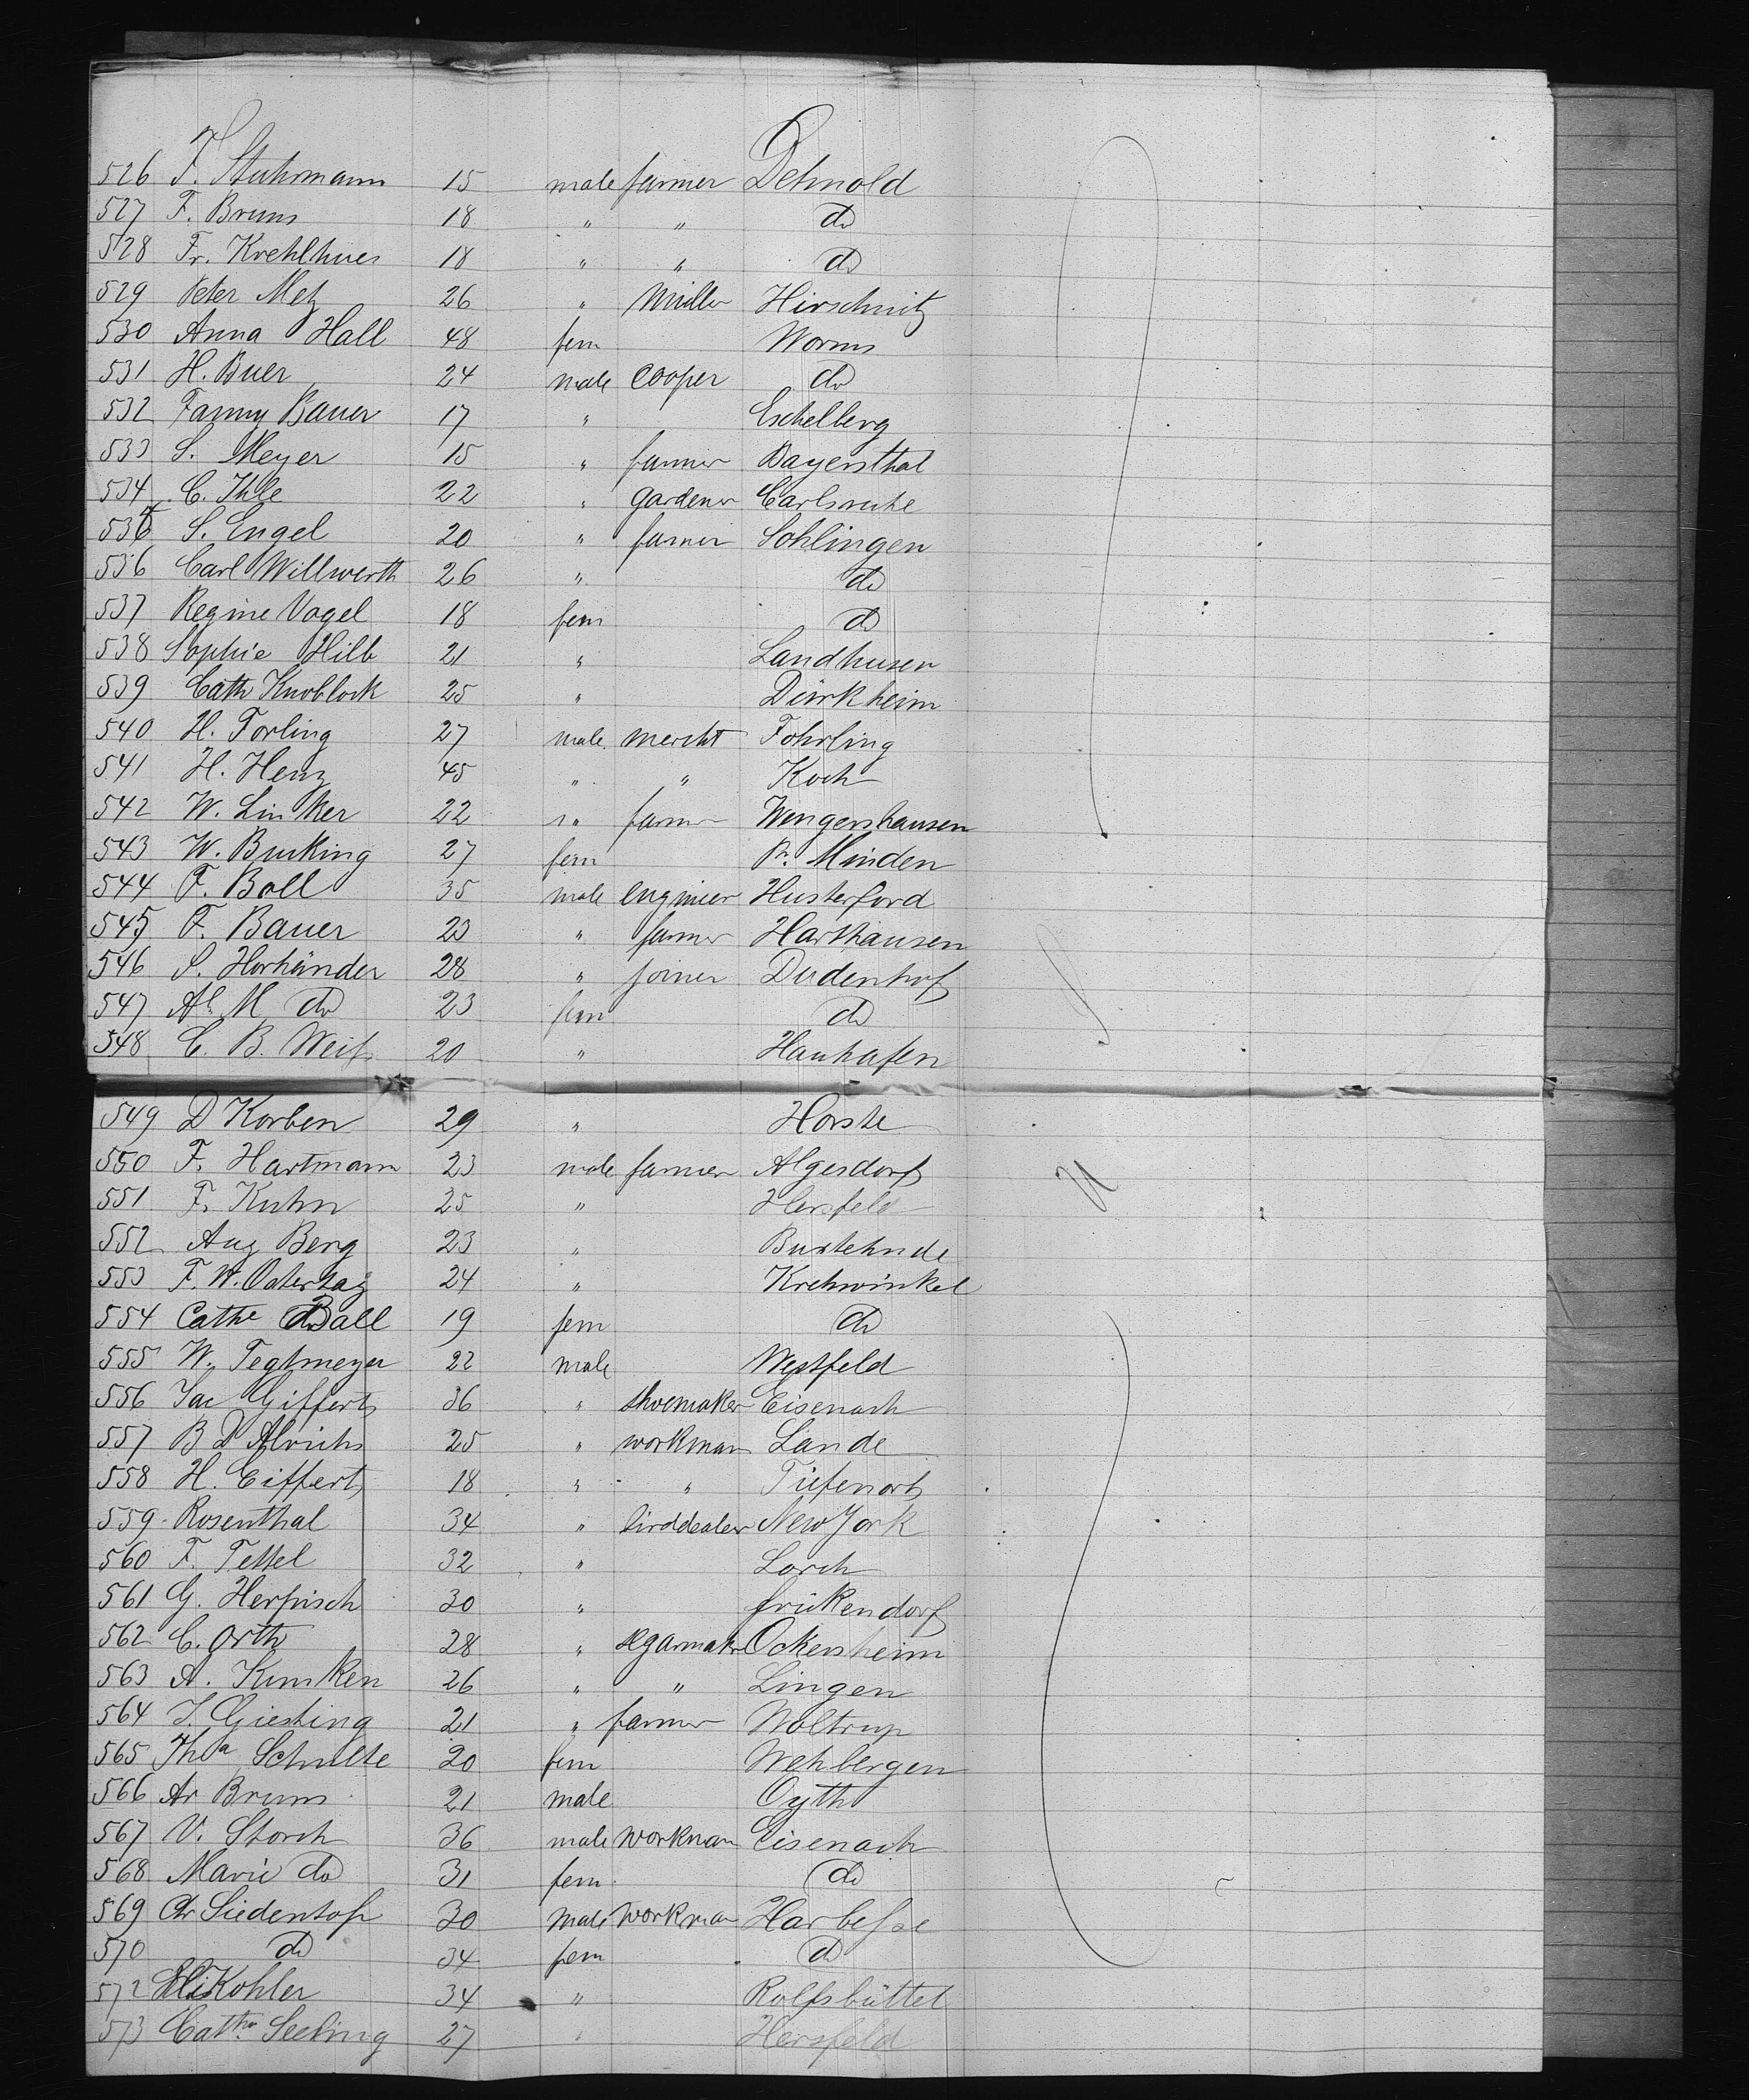 526 F. Stuhrmann 15 male farmer Detmold
527 F. Bruns 18 " " do
528 Fr. Krehlhues 18 " " do
529 Peter Metz 26 " Miller Hirschnitz
530 Anna Hall 48 fem Worms
531 H. Buer 24 male cooper do
532 Fanny Bauer 17 " Eschelberg
533 S. Meyer 15 " farmer Bayersthal
534 C. Ihle 22 " gardener Carlsruhe
S. Engel 20 " farmer Sohlingen
536 Carl Willwerth 26 " do
537 Regine Vogel 18 fem do
538 Sophie Hilb 21 " Landhusen
539 Cath Knoblock 25 " Dürkheim
540 H. Forling 27 male mercht Fohrling
541 H. Henz 45 " " Koch
542 W. Linker 22 " farmer Wengershausen
543 W. Bucking 27 fem Pr. Minden
544 F. Boll 35 male engineer Husterford
545 F. Bauer 23 " farmer Harthausen
546 S. Horhänder 28 " joiner Dudenhof
547 Al. M do 23 fem do
548 C. B. Weiss 20 " Hauhafen
549 D Korben 29 " Horste
550 F. Hartmann 23 male farmer Algesdorf
551 F. Kuhn 25 " Hersfeld
552 Aug Berg 23 " Buxtehude
553 F. W. Ostertag 24 " Krehwinkel
554 Cathe Ball 19 fem do
555 W. Tegtmeyer 22 male Westfeld
556 Jac Gifferts 36 " shoemaker Eisenach
557 B D Ahrichs 25 " workman Lande
558 H. Eiffert 18 " " Tiefenort
559 Rosenthal 34 " birddealer New York
560 F. Tettel 32 " Lorch
561 G. Herpisch 30 " frickendorf
562 C. Orth 28 " segarmaker Ockersheim
563 A. Kumken 26 " " Lingen
564 J. Giesting 21 " farmer Woltrup
565 Tha Schulte 20 fem Wehbergen
566 Ar Bruns 21 male Oyth
567 V. Storch 36 male workman Eisenach
568 Marie do 31 fem do
569 Chr Siedentopf 30 male workman Harbesse
570 do 34 fem do
572 Kohler 34 " Rolfsbüttel
573 Cathe Seeling 27 " Hersfeld